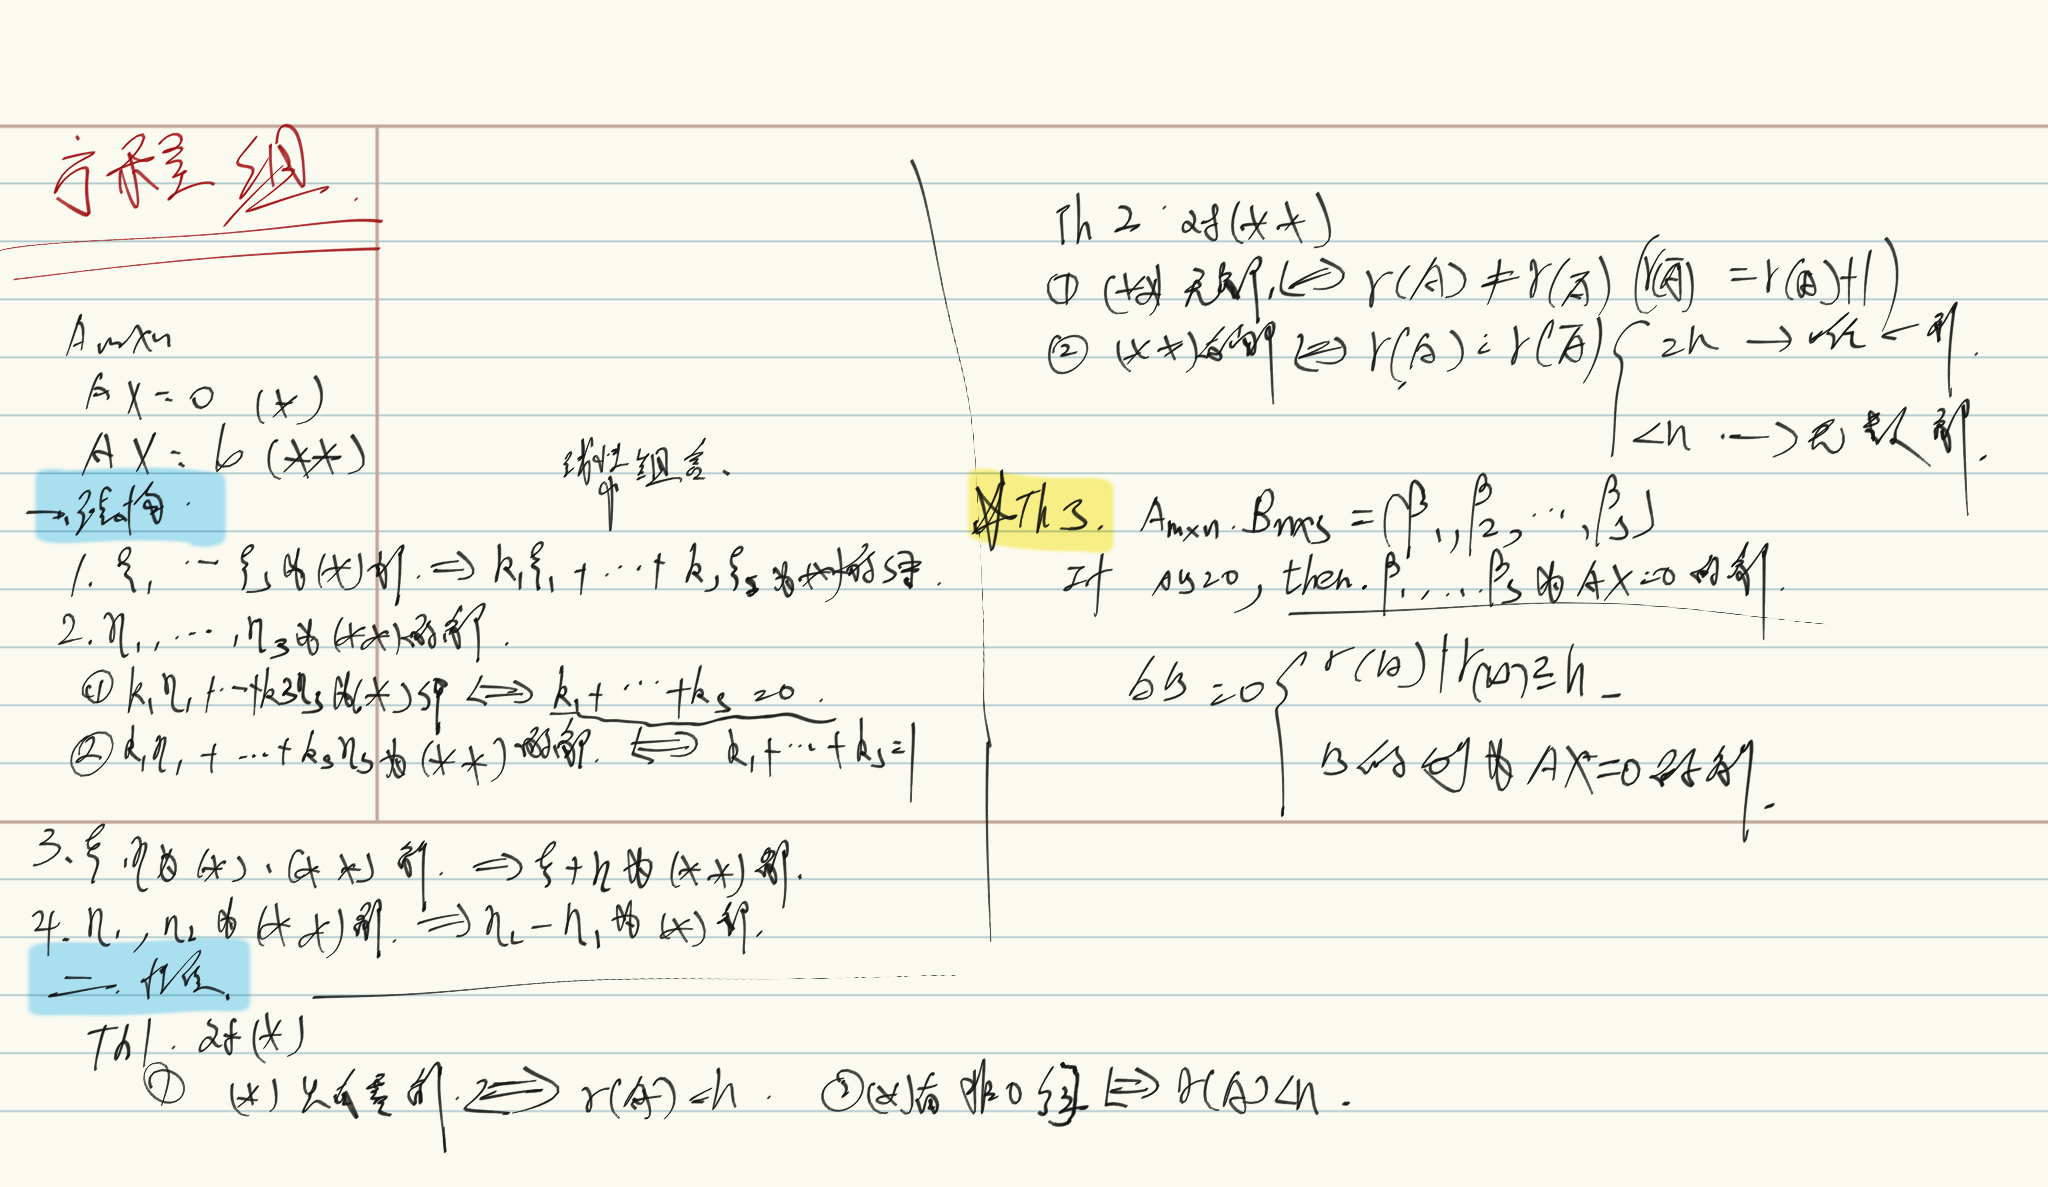 方程组.
Amxn
AX=0 (*)
AX=b (**)
一.结构.
线性组合.
1. ξ₁, … ξₛ为(*)解. ⇒ k₁ξ₁ + … + kₛξₛ为(*)的
2. η₁, …, ηₛ为(**)的解.
① k₁η₁ + … + kₛηₛ为(*) ⇔ k₁ + … + kₛ = 0.
② k₁η₁ + … + kₛηₛ为(**)的解. ⇔ k₁ + … + kₛ = 1
3. ξ, η为(*), (**)解. ⇒ ξ+η为(**)解.
4. η₁, η₂为(**)解. ⇒ η₂ - η₁为(*)解.
二. 性质.
Th1. 对(*)
① (*)只有零解. ⇔ r(A)=n. ②(*)有非0解 ⇔ r(A)<n.
Th 2. 对(**)
① (**)无解, ⇔ r(A) ≠ r(Ā) (r(Ā) = r(A)+1)
② (**)有解 ⇔ r(A) = r(Ā) { =n → 唯一解.
<n → 无数解.
☆Th 3. Amxn. Bnxs = (β₁, β₂, …, βₛ)
If AB=0, then. β₁, … βₛ为AX=0的解.
AB=0 { r(A)+r(B)≤n
B的列为AX=0的解.